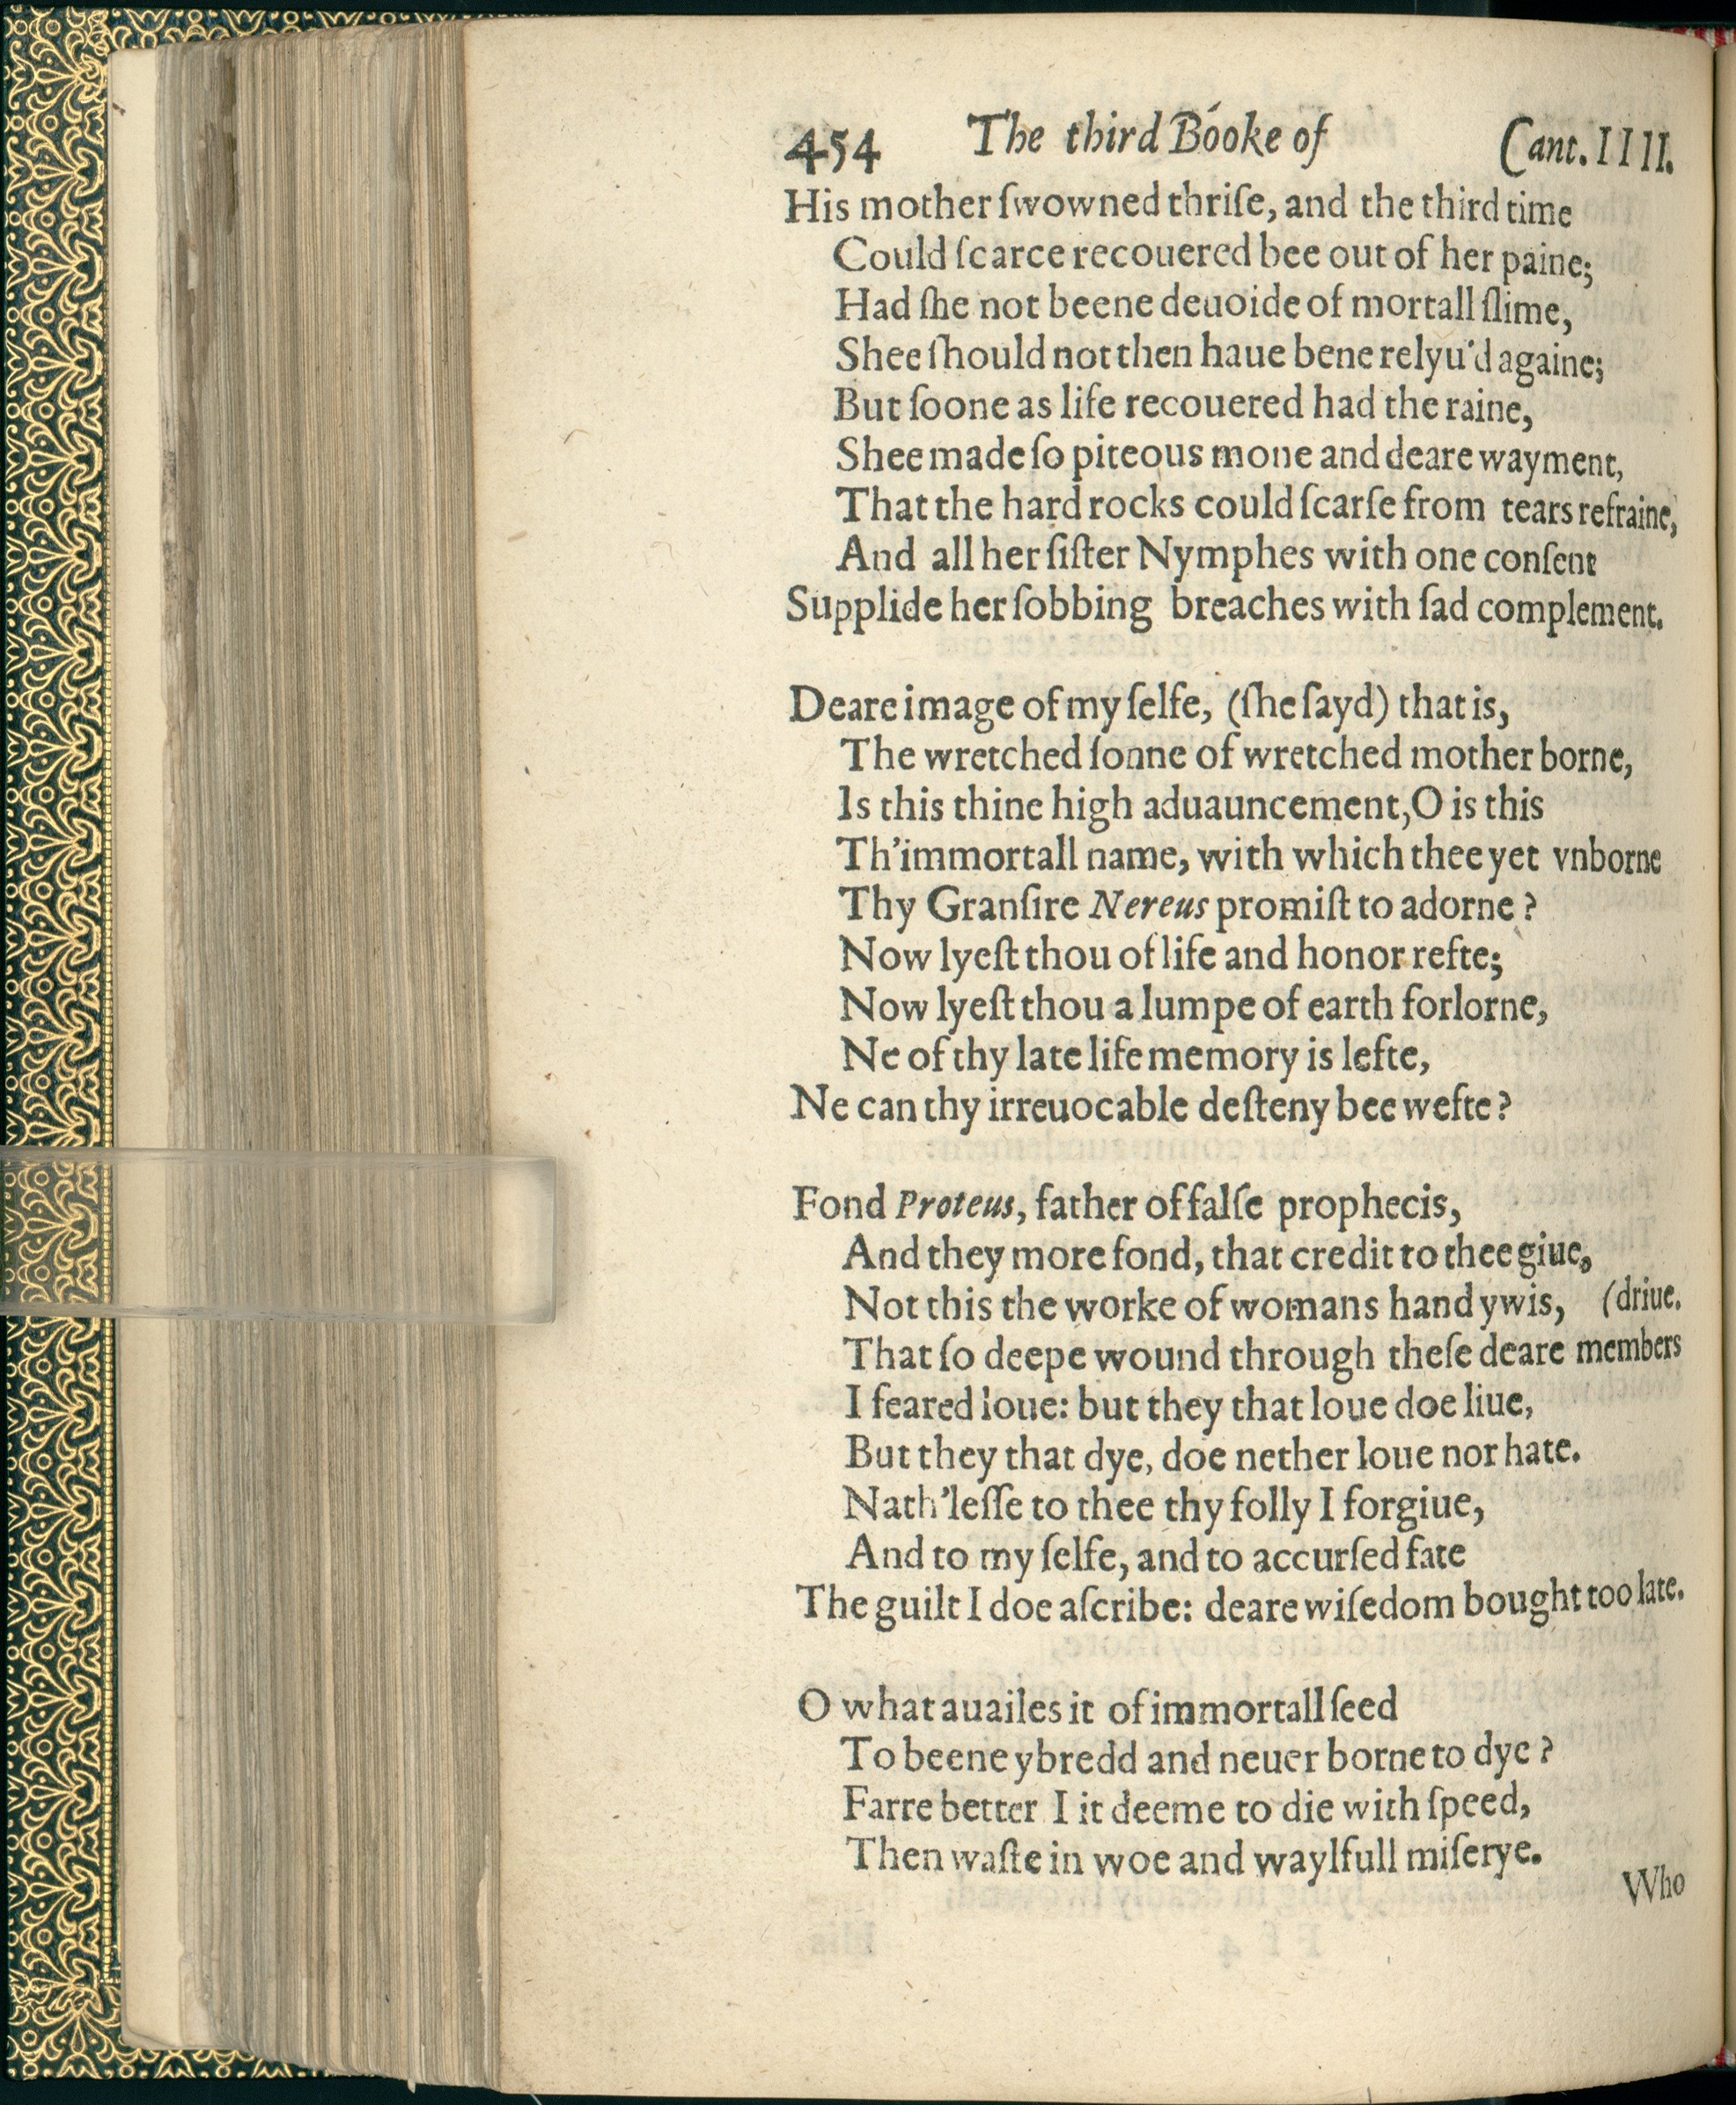 454 The third Booke of Cant. IIII.
His mother ſwowned thriſe, and the third time
Could ſcarce recouered bee out of her paine;
Had ſhe not beene deuoide of mortall ſlime,
Shee ſhould not then haue bene relyu'd againe;
But ſoone as life recouered had the raine,
Shee made ſo piteous mone and deare wayment,
That the hard rocks could ſcarſe from tears refraine,
And all her ſiſter Nymphes with one conſent
Supplide her ſobbing breaches with ſad complement.

Deare image of my ſelfe, (ſhe ſayd) that is,
The wretched ſonne of wretched mother borne,
Is this thine high aduauncement, O is this
Th'immortall name, with which thee yet vnborne
Thy Granſire Nereus promiſt to adorne?
Now lyeſt thou of life and honor refte;
Now lyeſt thou a lumpe of earth forlorne,
Ne of thy late life memory is lefte,
Ne can thy irreuocable deſteny bee wefte?

Fond Proteus, father of falſe prophecis,
And they more fond, that credit to thee giue,
Not this the worke of womans hand ywis, (driue.
That ſo deepe wound through theſe deare members
I feared loue: but they that loue doe liue,
But they that dye, doe nether loue nor hate.
Nath'leſſe to thee thy folly I forgiue,
And to my ſelfe, and to accurſed fate
The guilt I doe aſcribe: deare wiſedom bought too late.

O what auailes it of immortall ſeed
To beene ybredd and neuer borne to dye?
Farre better I it deeme to die with ſpeed,
Then waſte in woe and waylfull miſerye.
Who